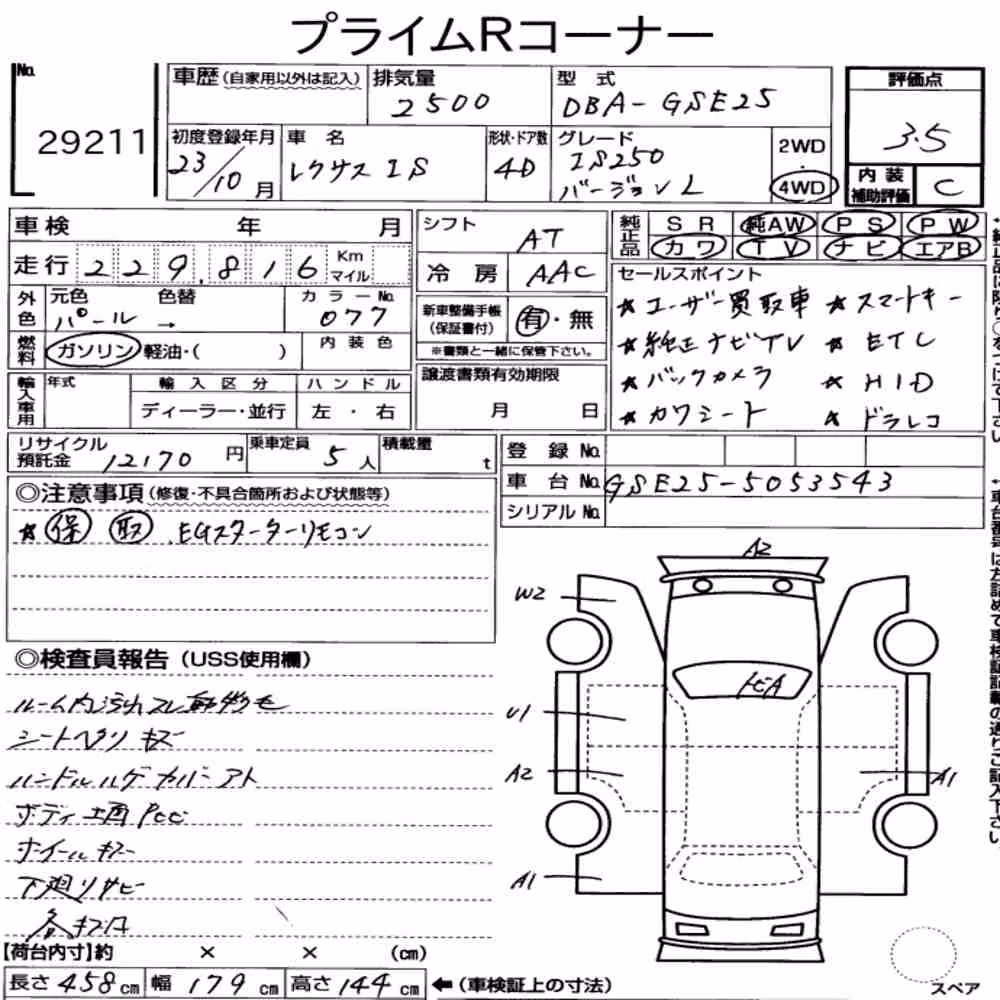 プライムRコーナー
No. 29211
車歴(自家用以外は記入)
排気量 2500
型式 DBA-GSE25
評価点 3.5
初度登録年月 23/10月
車名 レクサス IS
形状・ドア数 4D
グレード IS250 バージョンL
2WD・4WD
内装補助評価 C
車検 年 月
シフト AT
純正品 SR 純AW PS PW
カワ TV ナビ エアB
走行 229,816 Km マイル
冷房 AAC
外色 元色 パール → 色替 カラーNo. 077
新車整備手帳(保証書付) 有・無
※書類と一緒に保管下さい。
燃料 ガソリン 軽油・( )
内装色
輸入車用 年式 輸入区分 ハンドル
ディーラー・並行 左・右
譲渡書類有効期限 月 日
セールスポイント
★ユーザー買取車 ★スマートキー
★純正ナビTV ★ETC
★バックカメラ ★HID
★カワシート ★ドラレコ
リサイクル預託金 12170円
乗車定員 5人
積載量 t
登録No.
車台No. GSE25-5053543
シリアルNo.
◎注意事項(修復・不具合箇所および状態等)
★保 取 EGスターターリモコン
◎検査員報告(USS使用欄)
ルーム内汚れスレ
シートヘリ キズ
ハンドル ハゲ カバーアト
ボディ
ホイールキズ
下廻りサビ
各キズ凹
A2
W2
U1
A2
A1
A1
【荷台内寸】約 × × (cm)
長さ 458cm 幅 179cm 高さ 144cm ←(車検証上の寸法)
スペア